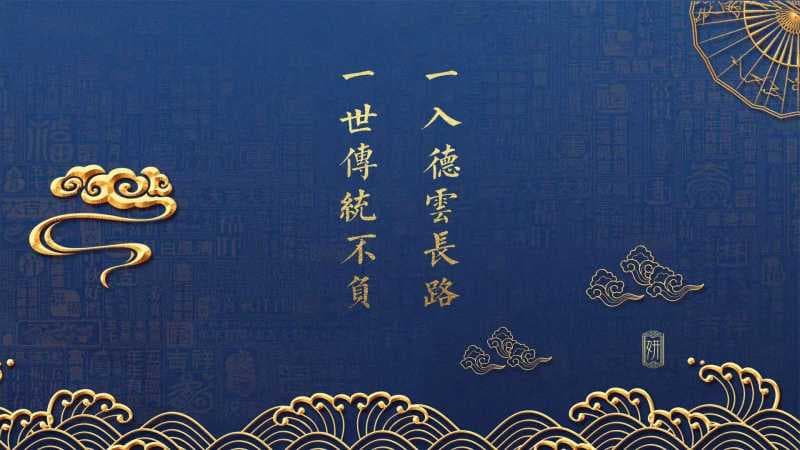 一入德雲長路
一世傳統不負
妍